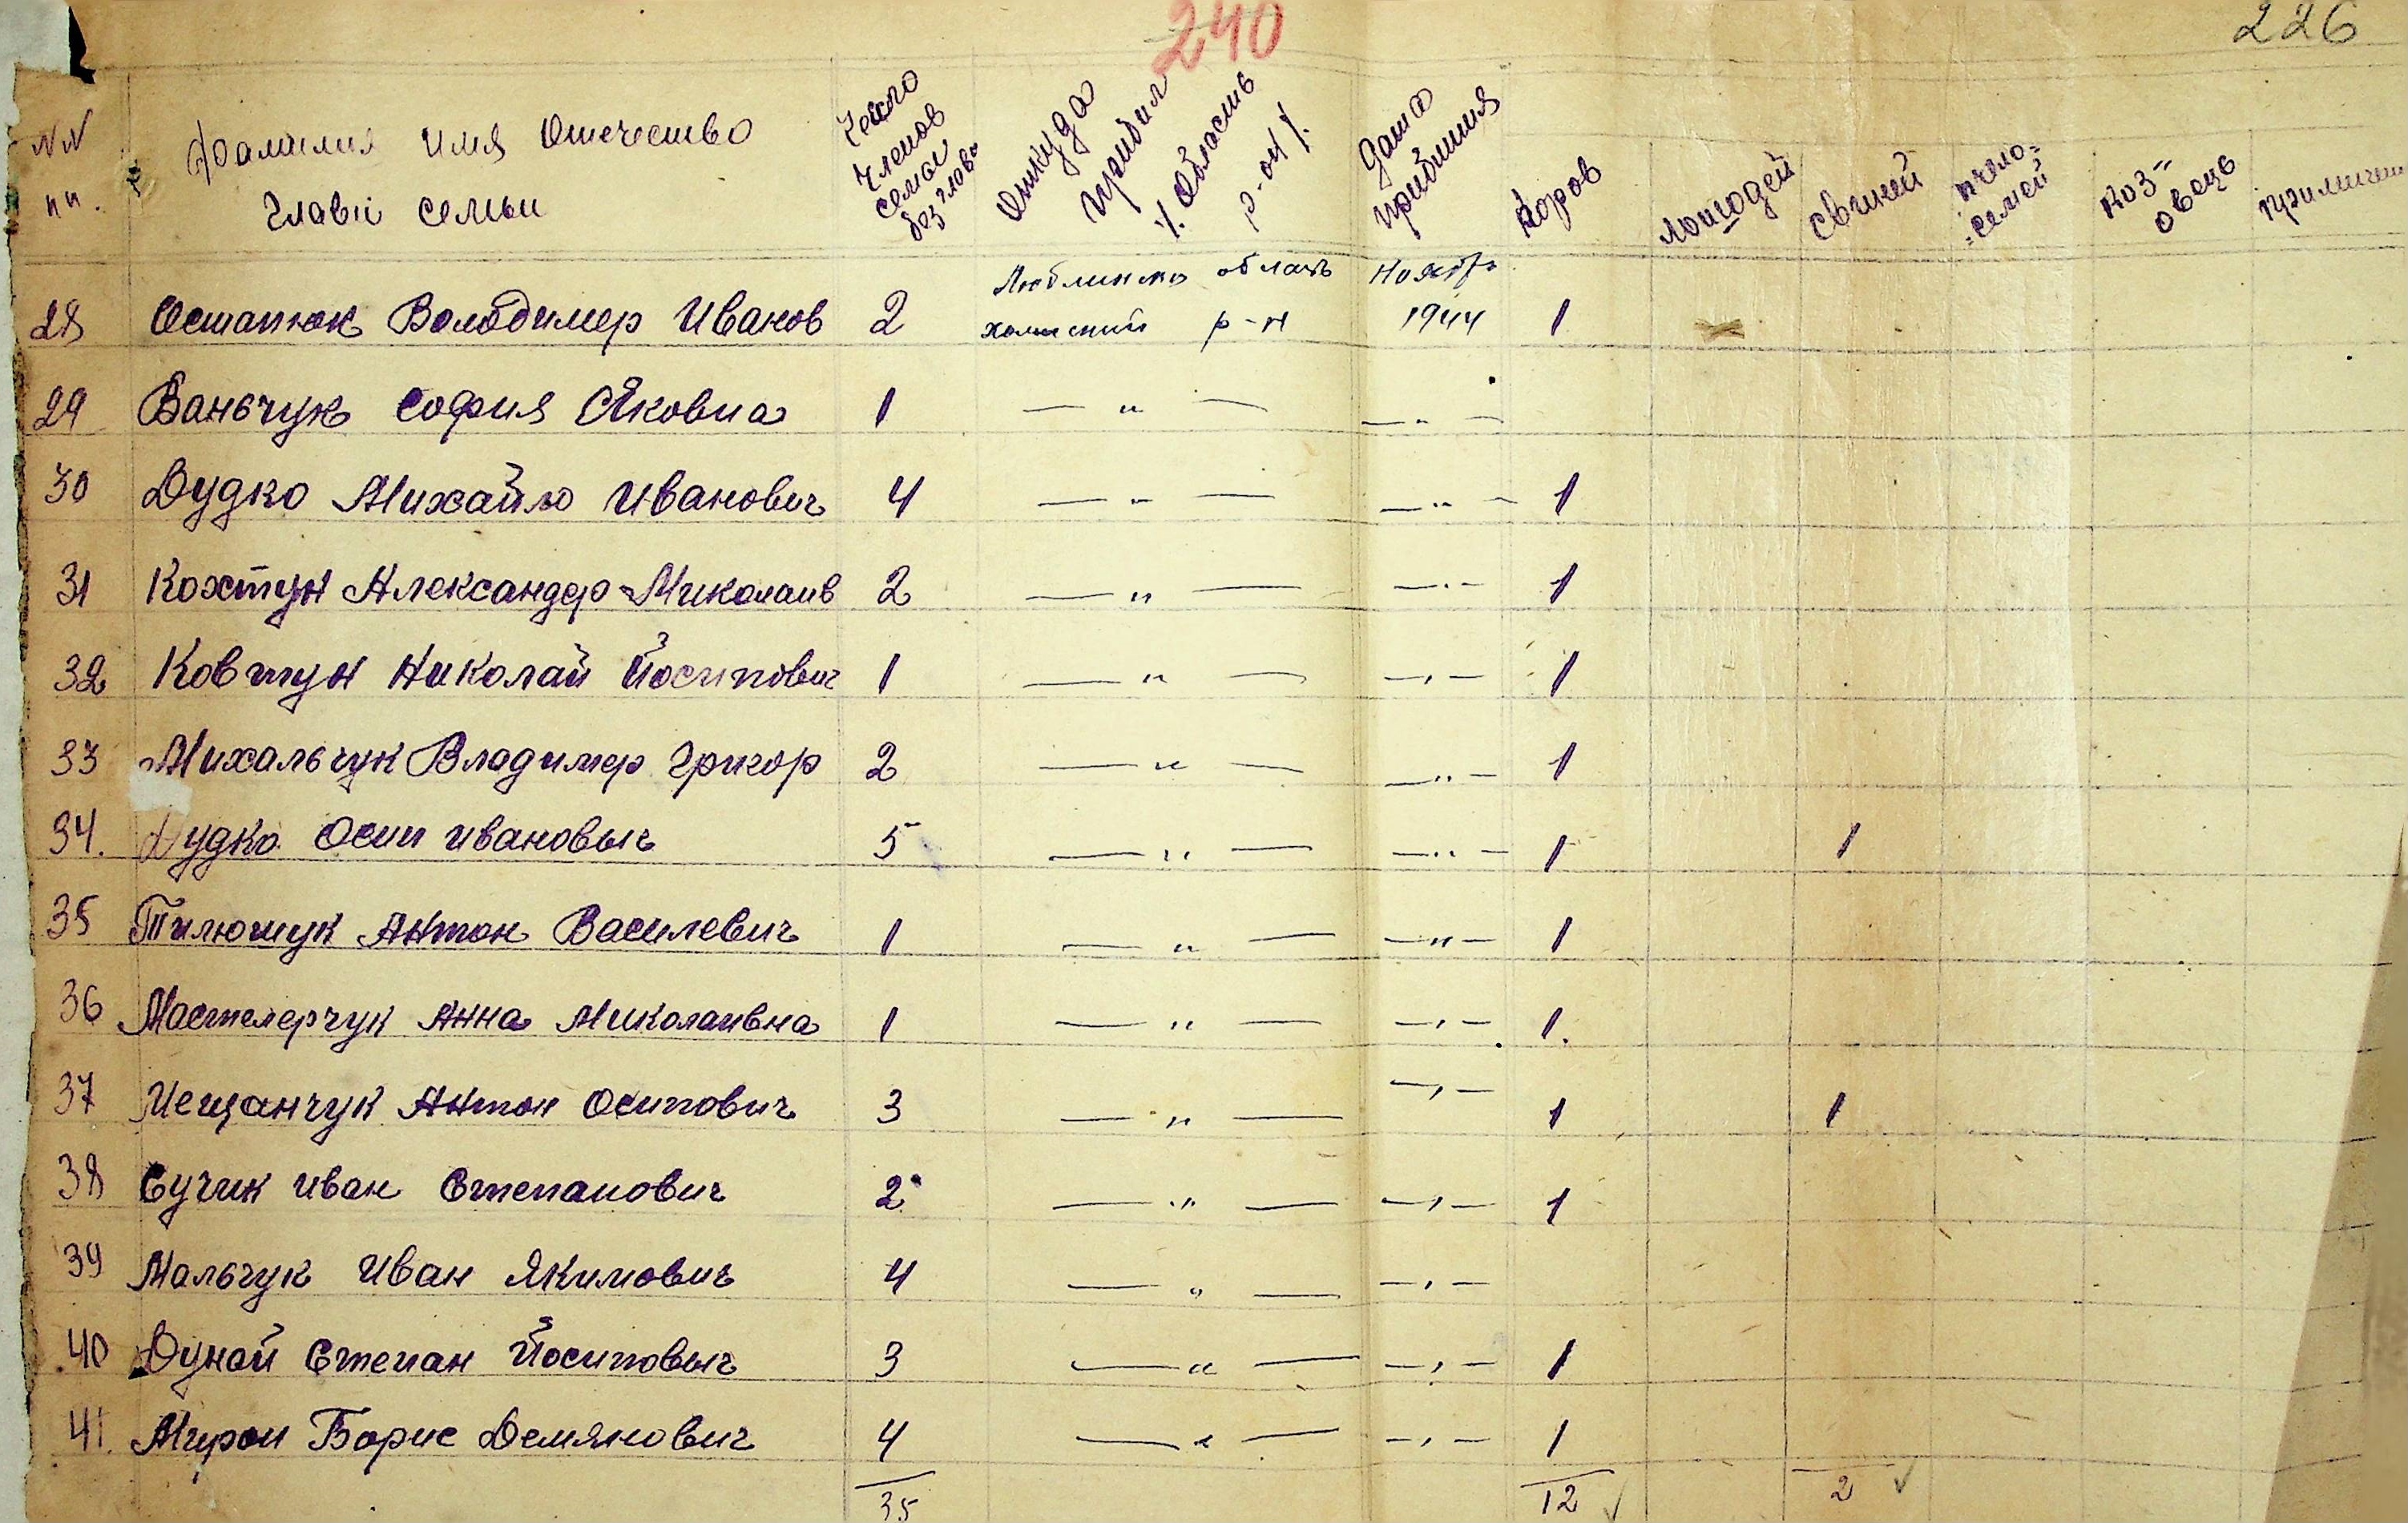 240
226
NN пп.
Фамилия Имя Отечество Главы семьи
Число членов семьи без главы
Откуда прибил /. Область р-он /.
Дата прибития
Коров
Лошадей
свиней
пчело-семей
Коз-овець
28 Остапюк Володимер Иванов 2 Люблинска область холмский р-н 1944 1
29 Ваньчук София Яковна 1 — " — — " —
30 Дудко Михайло Иванович 4 — " — — " — 1
31 Кохтун Александер Миколаив 2 — " — — " — 1
32 Ковтун Николай Йосипович 1 — " — — " — 1
33 Михальчук Владимер Григор 2 — " — — " — 1
34. Дудко Осип Ивановыч 5 — " — — " — 1 1
35 Антон Василевич 1 — " — — " — 1
36 Анна Миколаивна 1 — " — — " — 1.
37 Мещанчук Антон Осипович 3 — " — — " — 1 1
38 Сучик Иван Степанович 2 — " — — " — 1
39 Мальчук Иван Якимович 4 — " — — " —
40 Дунай Степан Йосиповыч 3 — " — — " — 1
41. Борис Демянович 4 — " — — " — 1
35 12 2